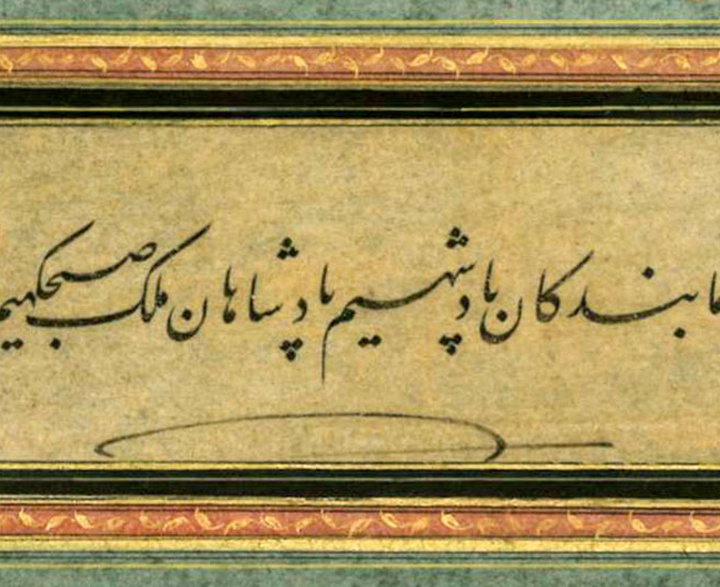 ما بندکان پادشهیم پادشاهان ملک صبحکهیم